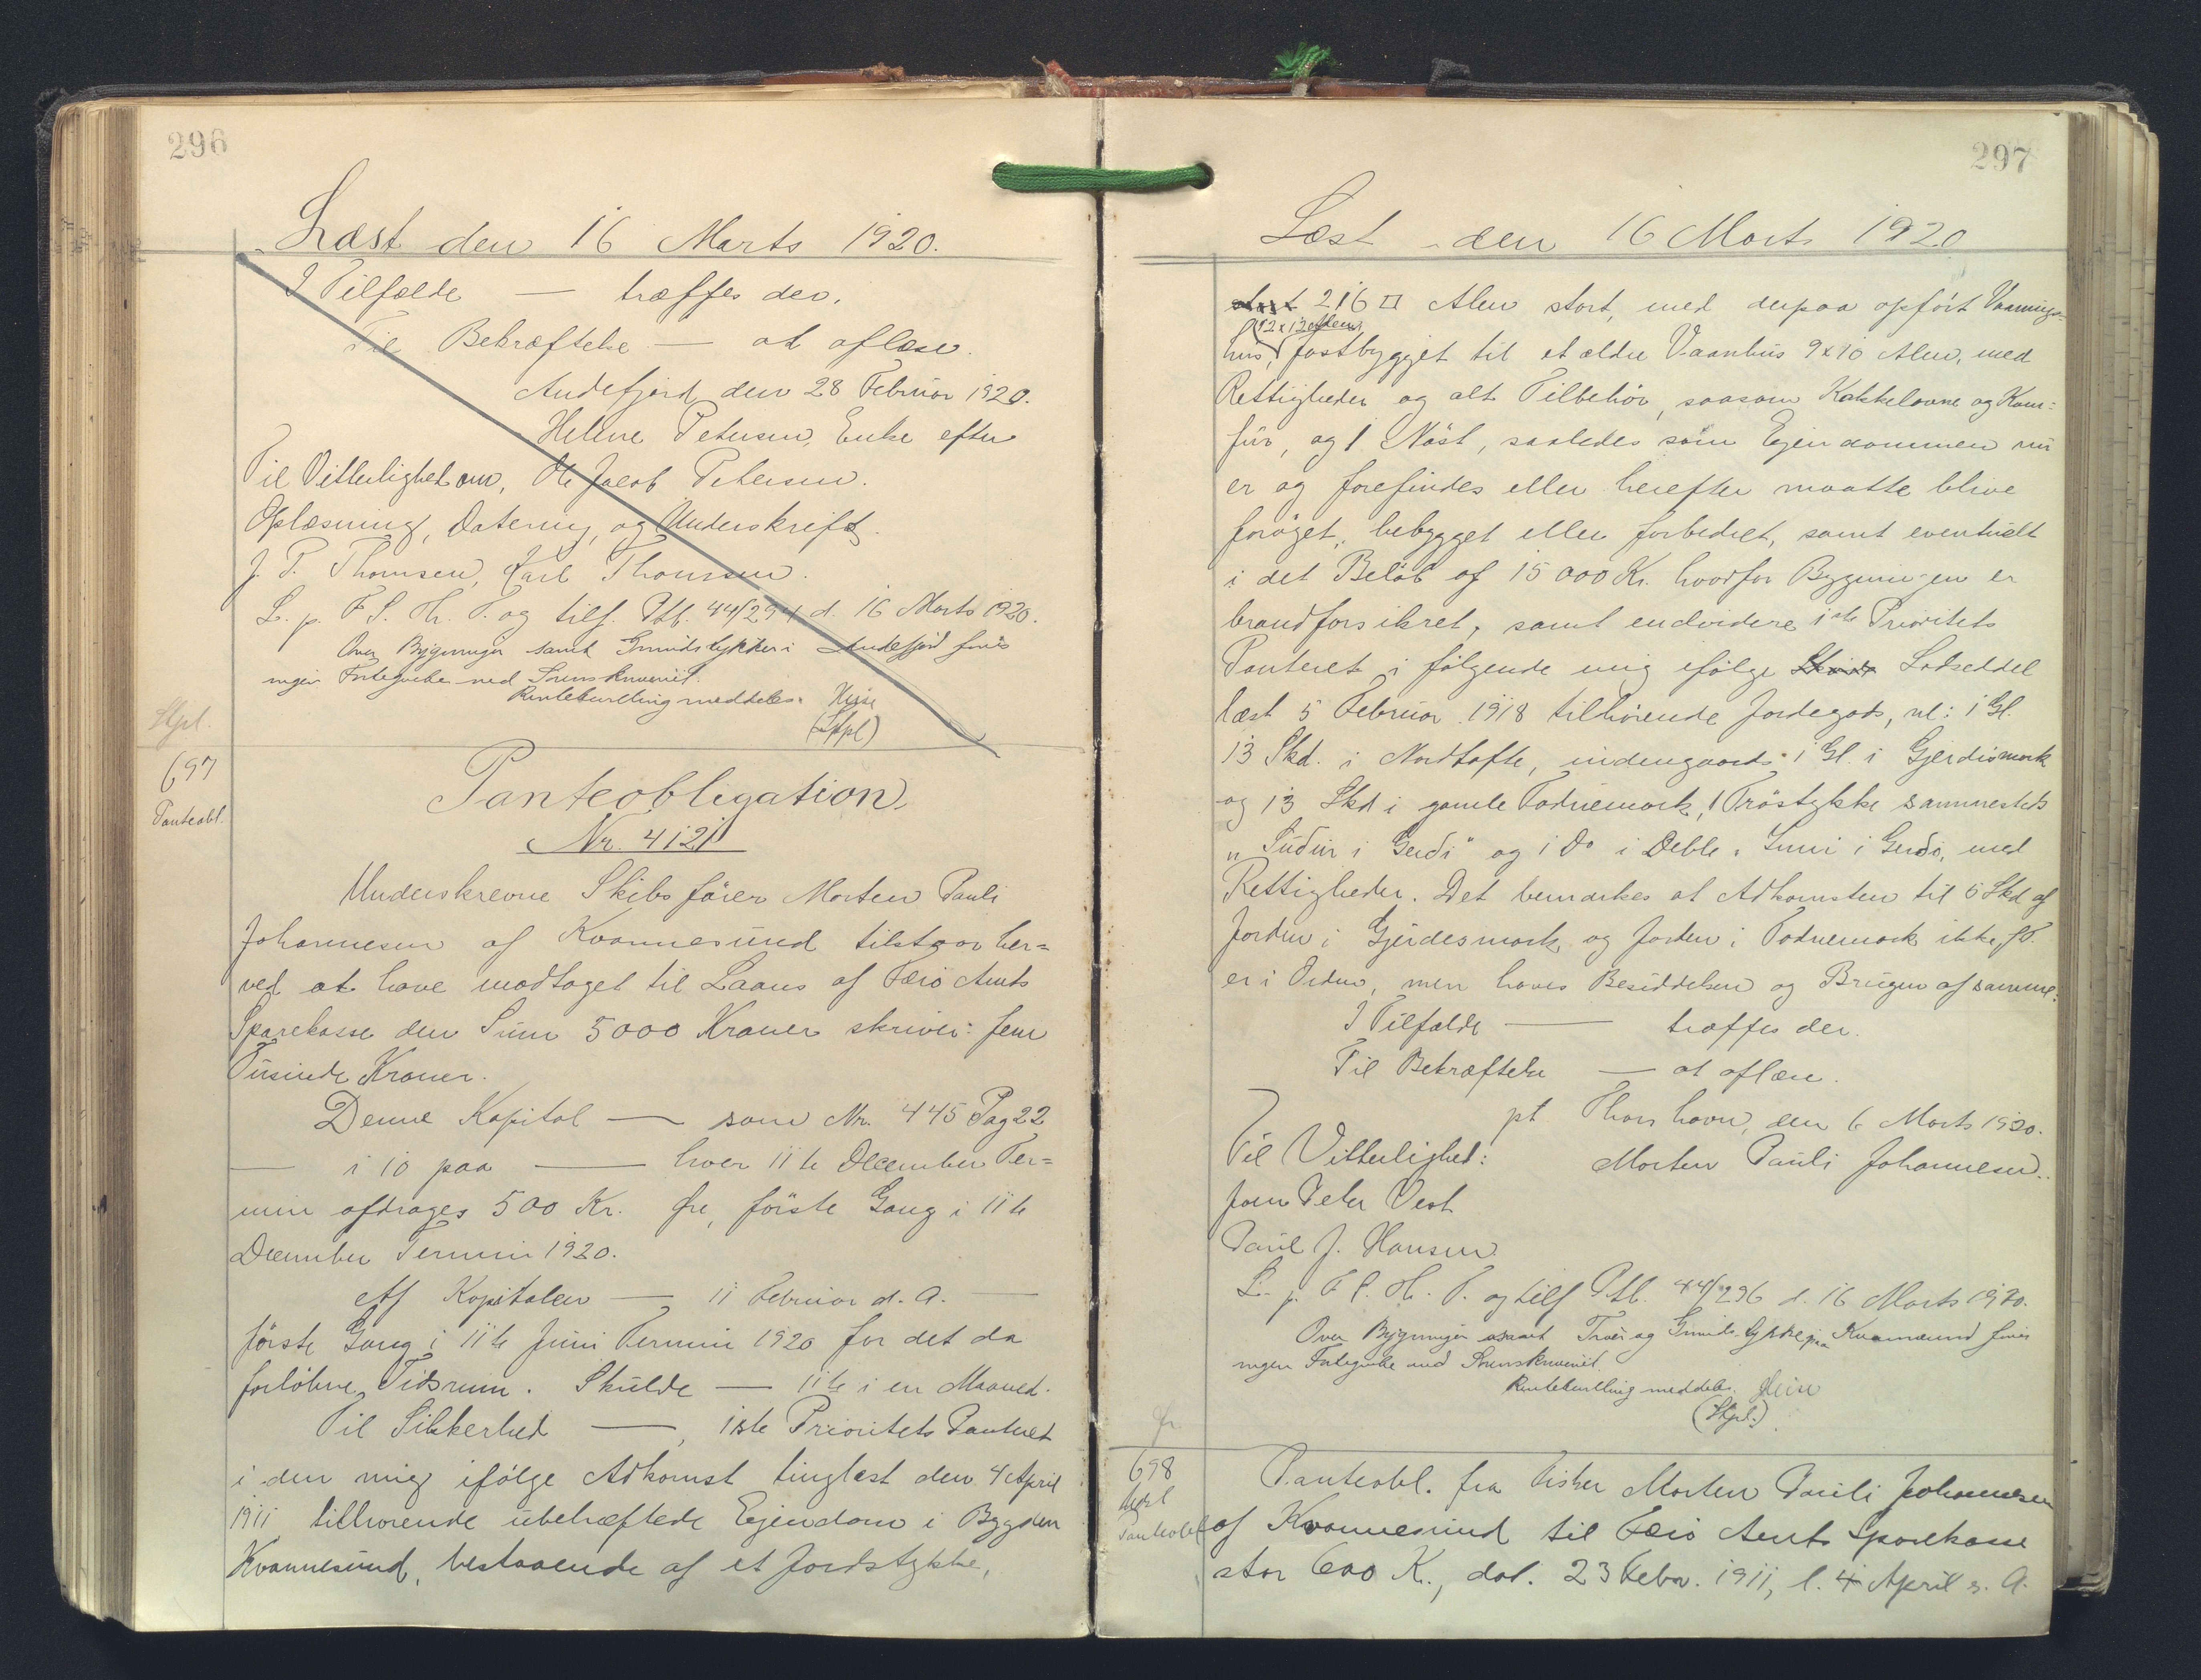 296
Læst den 16 Marts 1920.
I Tilfælde — træffes der.
Til Bekræftelse — at aflæse.
Andefjord den 28 Februar 1920.
Helene Petersen, Enke efter
Til Vitterlighed om, Ole Jacob Petersen.
Oplæsning, Datering, og Underskrift.
J. P. Thomsen, Karl Thomsen.
L. p. F. S. Th. P. og tilf. Ptb. 44/294 d. 16 Marts 1920.
Over Bygninger samt Grundstykker i Andefjord finds
ingen Fortegnelse ved Sorenskriveriet.
Rentekvittering meddeles. Heise
(Stpl)
Stpl.
697
Panteobl.
Panteobligation
Nr. 4121
Underskrevne Skibsfører Morten Pauli
Johannesen af Kvannesund tilstaar her=
ved at have modtaget til Laans af Færø Amts
Sparekasse den Sum 5000 Kroner skriver: fem
Tusinde Kroner.
Denne Kapital — som Nr. 445 Pag 22
— i 10 paa — hver 11te December Ter=
min afdrages 500 Kr. Øre, første Gang i 11te
December Termin 1920.
Af Kapitalen — 11 Februar d. A. —
første Gang i 11te Juni Termin 1920 for det da
forløbne Tidsrum. Skulde — 11te i en Maaned.
Til Sikkerhed —, 1ste Prioritets Panteret
i den mig ifølge Adkomst tinglæst den 4 April
1911 tilhørende ubehæftede Ejendom i Bygden
Kvannesund, bestaaende af et Jordstykke,
297
Læst den 16 Marts 1920
stort 216 □ Alen stort, med derpaa opført Vaanings-
12x12 Alen,
hus, fastbygget til et ældre Vaanhus 9x10 Alen, med
Rettigheder og alt Tilbehør, saasom Kakkelovne og Kom=
fur, og 1 Nøst, saaledes som Ejendommen nu
er og forefindes eller herefter maatte blive
forøget, bebygget eller forbedret, samt eventuelt
i det Beløb af 15000 Kr. hvorfor Bygningen er
brandforsikret, samt endvidere 1ste Prioritets
Panteret i følgende mig ifølge Skøde Lodseddel
læst 5 Februar 1918 tilhørende Jordegods, nl: 1 Gl.
13 Skd. i Nordtofte, indengaards 1 Gl. i Gjerdismark
og 13 Skd i gamle Todnemark, 1 Trøstykke sammesteds
"Sudur i Gerdi" og 1 do i Deble. Inni i Gerdi, med
Rettigheder. Det bemærkes at Adkomsten til 6 Skd af
Jorden i Gjerdesmark og Jorden i Todnemark ikke f.T.
er i Orden, men haves Besiddelsen og Brugen af samme.
I Tilfælde — træffes der.
Til Bekræftelse — at aflæse.
pt Thorshavn, den 6 Marts 1920.
Til Vitterlighed: Morten Pauli Johannesen.
Joen Peter Vest
Paul J. Hansen
L. p. F. S. Th. P. og tilf Ptb. 44/296 d. 16 Marts 1920.
Over Bygninger samt Trøer og Grundstykke paa Kvannesund finds
ingen Fortegnelse ved Sorenskriveriet.
Rentekvittering meddeles. Heise
(Stpl.)
698
Panteobl
Panteobl. fra Fisker Morten Pauli Johannesen
af Kvannesund til Færø Amts Sparekasse
stor 600 K., dat. 23 Febr. 1911, l. 4 April s. A.